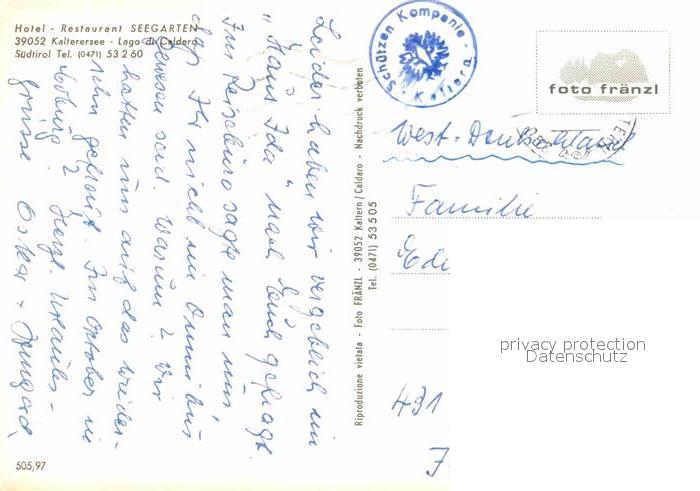 Hotel - Restaurant SEEGARTEN
39052 Kalterersee - Lago di Caldaro
Südtirol Tel. (0471) 53 2 60
Leider haben wir vergeblich im
"Haus Ida" nach Euch gefragt.
Im Reisebüro sagte man uns,
daß Ihr nicht im Omnibus
gewesen seid. Warum? Wir
hatten uns auf das Wieder-
sehn gefreut. Im Oktober in
Coburg? Herzl. Urlaubs-
grüsse Oskar + Irmgard
505,97
Riproduzione vietata - Foto FRÄNZL - 39052 Kaltern / Caldaro - Nachdruck verboten
Tel. (0471) 53505
Schützen Kompanie - Kaltern -
foto fränzl
West-Deutschland
Familie
Edi
privacy protection
Datenschutz